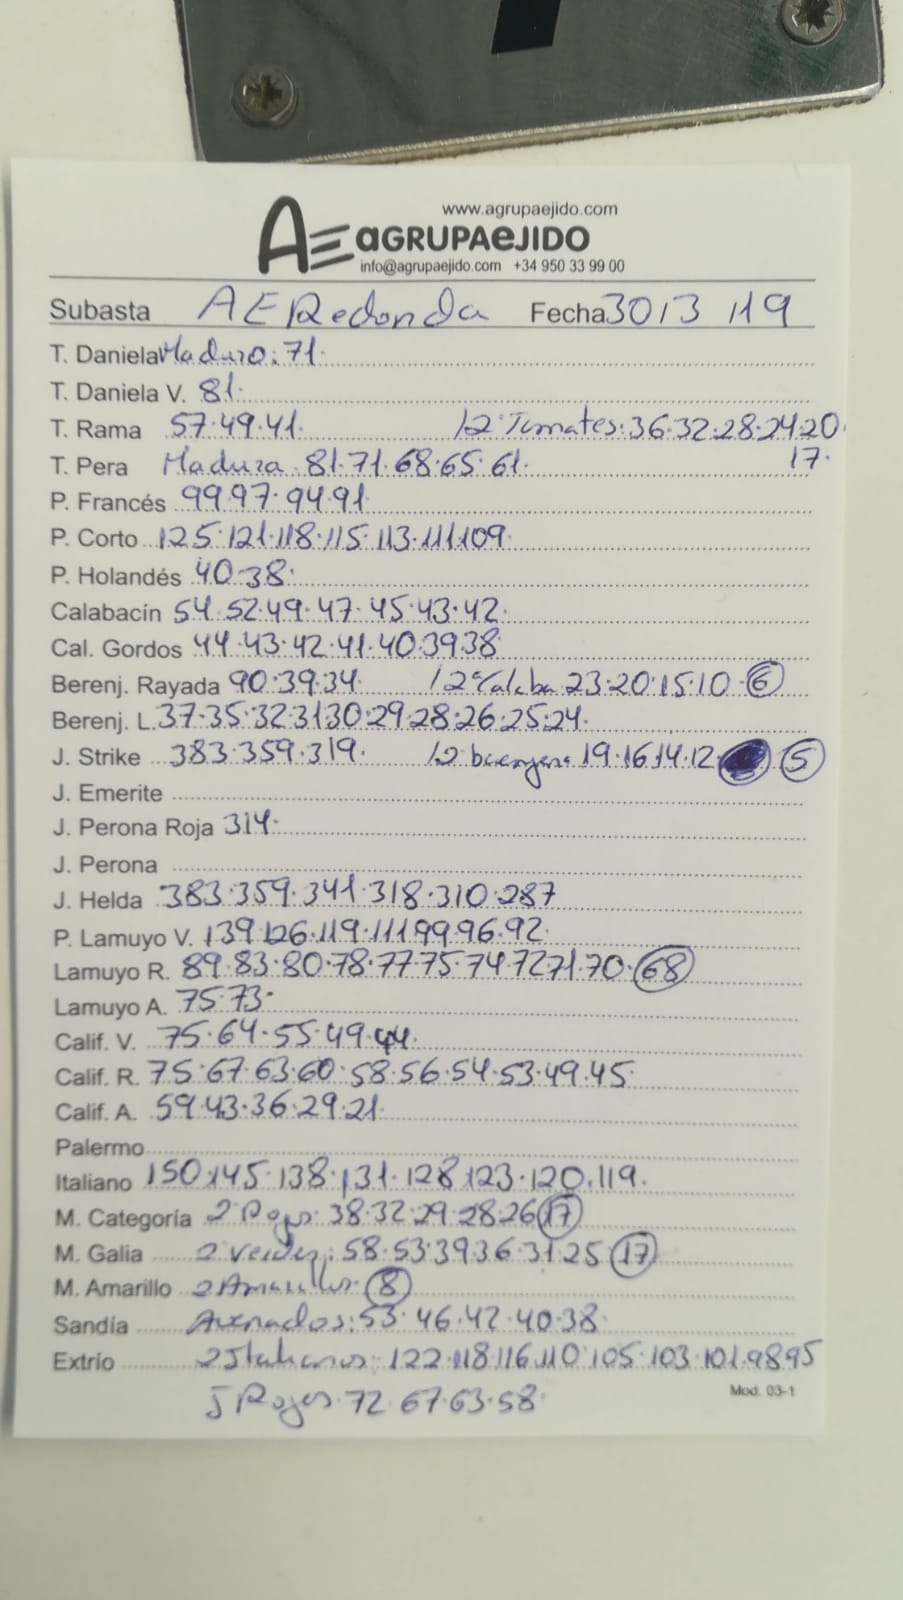 www.agrupaejido.com
AE aGRUPAeJIDO
info@agrupaejido.com +34 950 33 99 00
Subasta AE Redonda Fecha 30/3/19
T. Daniela Maduro: 71.
T. Daniela V. 81.
T. Rama 57.49.41. 2ª Tomates: 36.32.28.24.20.
17.
T. Pera Madura 81.71.68.65.61.
P. Francés 99.97.94.91.
P. Corto 125.121.118.115.113.111.109.
P. Holandés 40.38.
Calabacín 54.52.49.47.45.43.42.
Cal. Gordos 44.43.42.41.40.39.38
Berenj. Rayada 90.39.34. 2ª Calaba 23.20.15.10.6
Berenj. L. 37.35.32.31.30.29.28.26.25.24.
J. Strike 383.359.319. 19.16.14.12 5
J. Emerite
J. Perona Roja 314.
J. Perona
J. Helda 383.359.341.318.310.287
P. Lamuyo V. 139.126.119.111.99.96.92.
Lamuyo R. 89.83.80.78.77.75.74.72.71.70.68
Lamuyo A. 75.73.
Calif. V. 75.64.55.49.44.
Calif. R. 75.67.63.60.58.56.54.53.49.45.
Calif. A. 59.43.36.29.21.
Palermo
Italiano 150.145.138.131.128.123.120.119.
M. Categoría 2ª Rojos: 38.32.29.28.26.17
M. Galia 2 Verdes: 58.53.39.36.31.25 17
M. Amarillo 2 Amarillos 8
Sandía Asurados: 53.46.42.40.38.
Extrío 2 Italianos: 122.118.116.110.105.103.101.98.95
J Rojos. 72.67.63.58.
Mod. 03-1